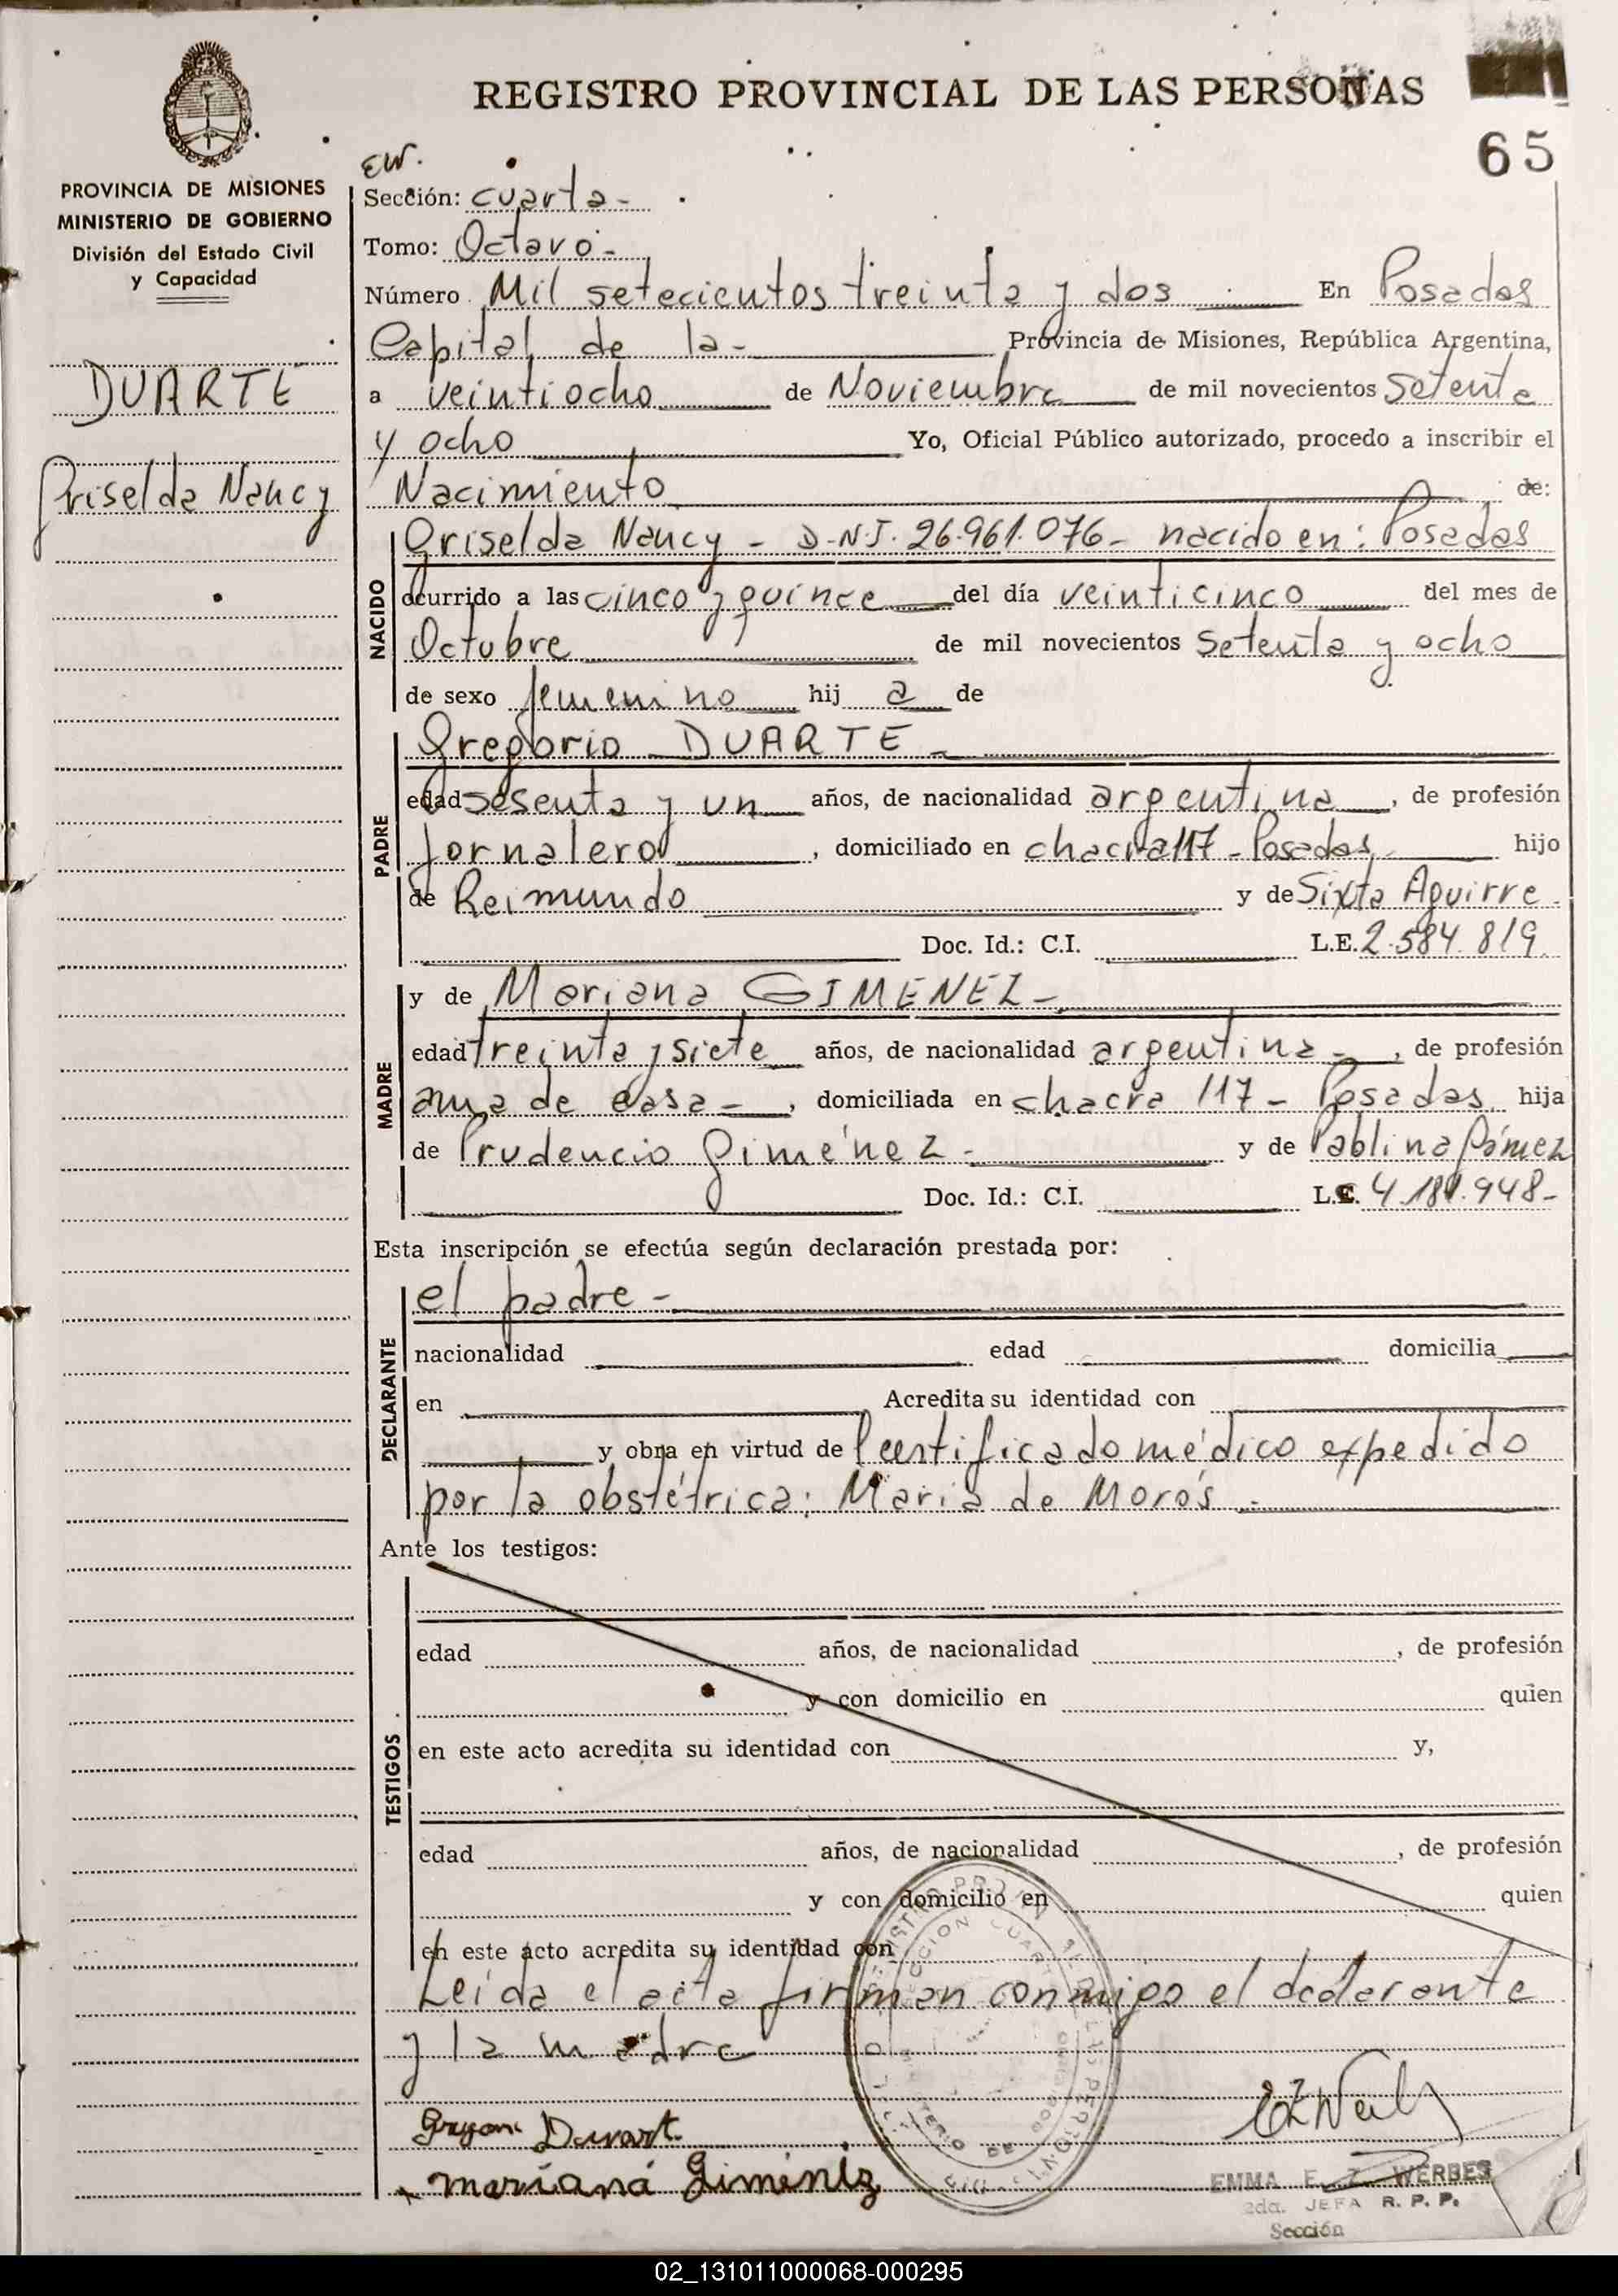 REGISTRO PROVINCIAL DE LAS PERSONAS
65
PROVINCIA DE MISIONES
MINISTERIO DE GOBIERNO
División del Estado Civil
y Capacidad
DUARTE
Griselda Nancy
EW.
Sección: cuarta-
Tomo: Octavo-
Número Mil setecientos treinta y dos En Posadas
Capital de la- Provincia de Misiones, República Argentina,
a veintiocho de Noviembre de mil novecientos setenta
y ocho Yo, Oficial Público autorizado, procedo a inscribir el
Nacimiento de:
NACIDO
Griselda Nancy - D.N.I. 26.961.076- nacido en: Posadas
ocurrido a las cinco y quince del día veinticinco del mes de
Octubre de mil novecientos setenta y ocho
de sexo femenino hij a de
PADRE
Gregorio DUARTE -
edad sesenta y un años, de nacionalidad argentina, de profesión
Jornalero, domiciliado en chacra 117 - Posadas, hijo
de Reimundo y de Sixta Aguirre.
Doc. Id.: C.I. L.E. 2.584.819
MADRE
y de Mariana GIMENEZ-
edad treinta y siete años, de nacionalidad argentina-, de profesión
ama de casa-, domiciliada en chacra 117 - Posadas, hija
de Prudencio Giménez - y de Pablina Gómez
Doc. Id.: C.I. L.C. 4.181.948-
Esta inscripción se efectúa según declaración prestada por:
DECLARANTE
el padre -
nacionalidad edad domicilia
en Acredita su identidad con
y obra en virtud de certificado médico expedido
por la obstétrica: Maria de Morós -
Ante los testigos:
TESTIGOS
edad años, de nacionalidad , de profesión
y con domicilio en quien
en este acto acredita su identidad con y,
edad años, de nacionalidad , de profesión
y con domicilio en quien
en este acto acredita su identidad con
Leída el acta firman conmigo el declarante
y la madre
Duart.
mariana Giméniz
EMMA E. Z. WERBES
2da. JEFA R. P. P.
Sección
02_131011000068-000295